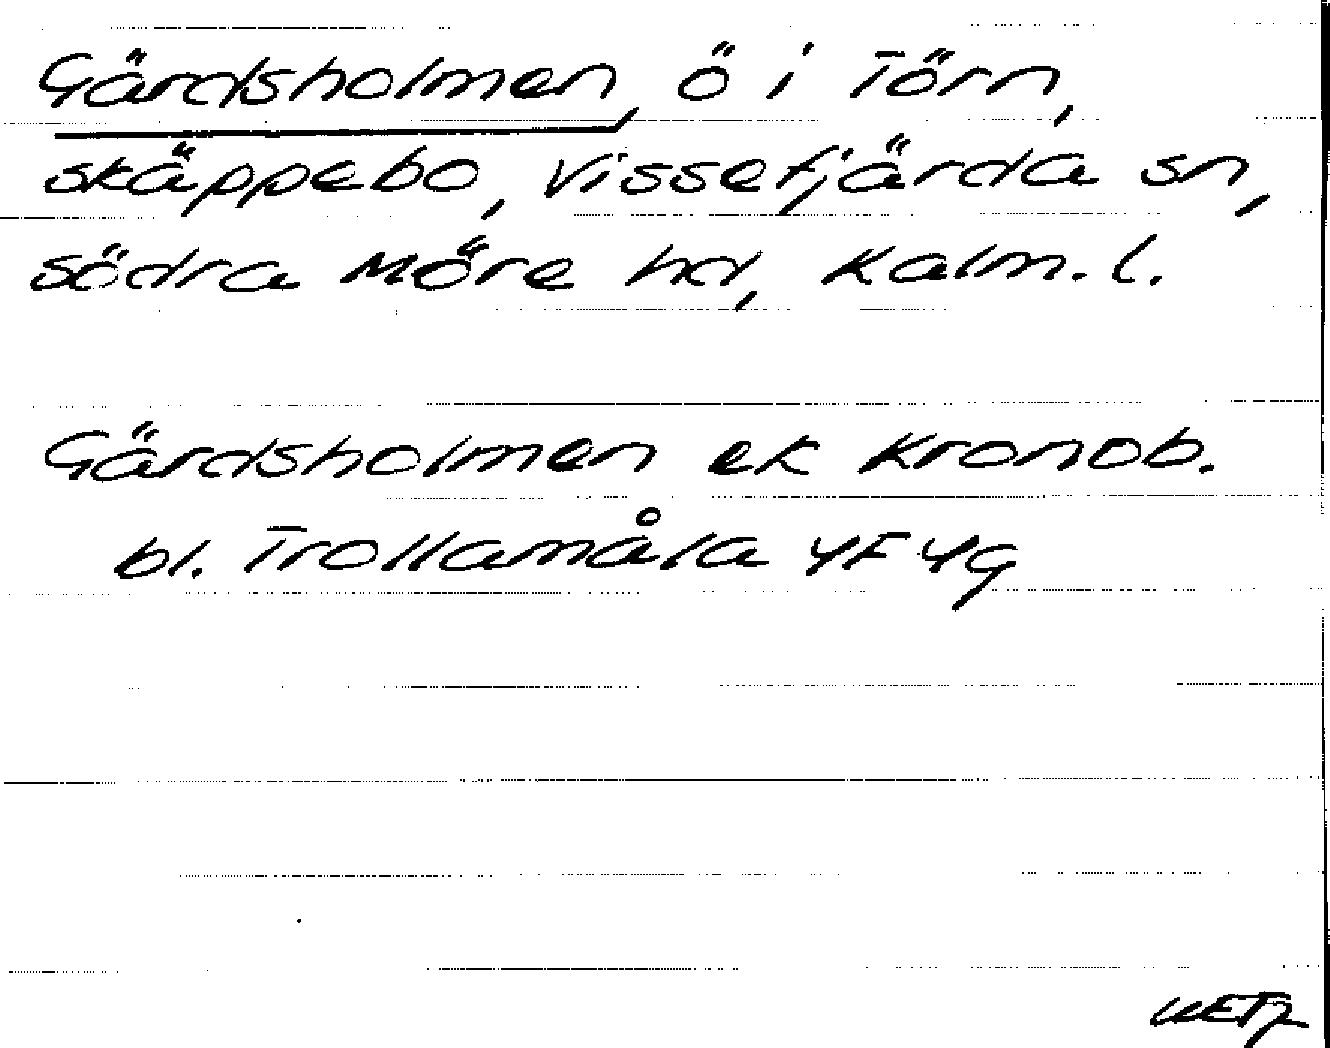 Gärdsholmen, ö i Törn,
skäppebo, Vissefjärda sn,
södra Möre hd, Kalm. l.
Gärdsholmen ek Kronob.
bl. Trollamåla 4F 4g